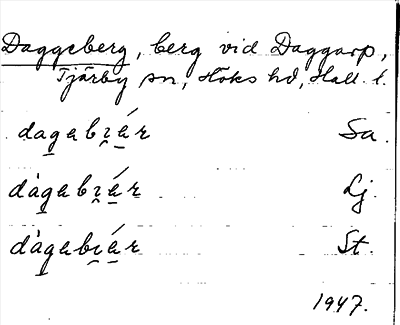 Daggeberg, berg vid Daggarp,
Tjärby sn, Höks hd, Hall. l.
dagabi̯ér Sa.
dàgabi̯ér Lj.
dàgabi̯ér St.
1947.